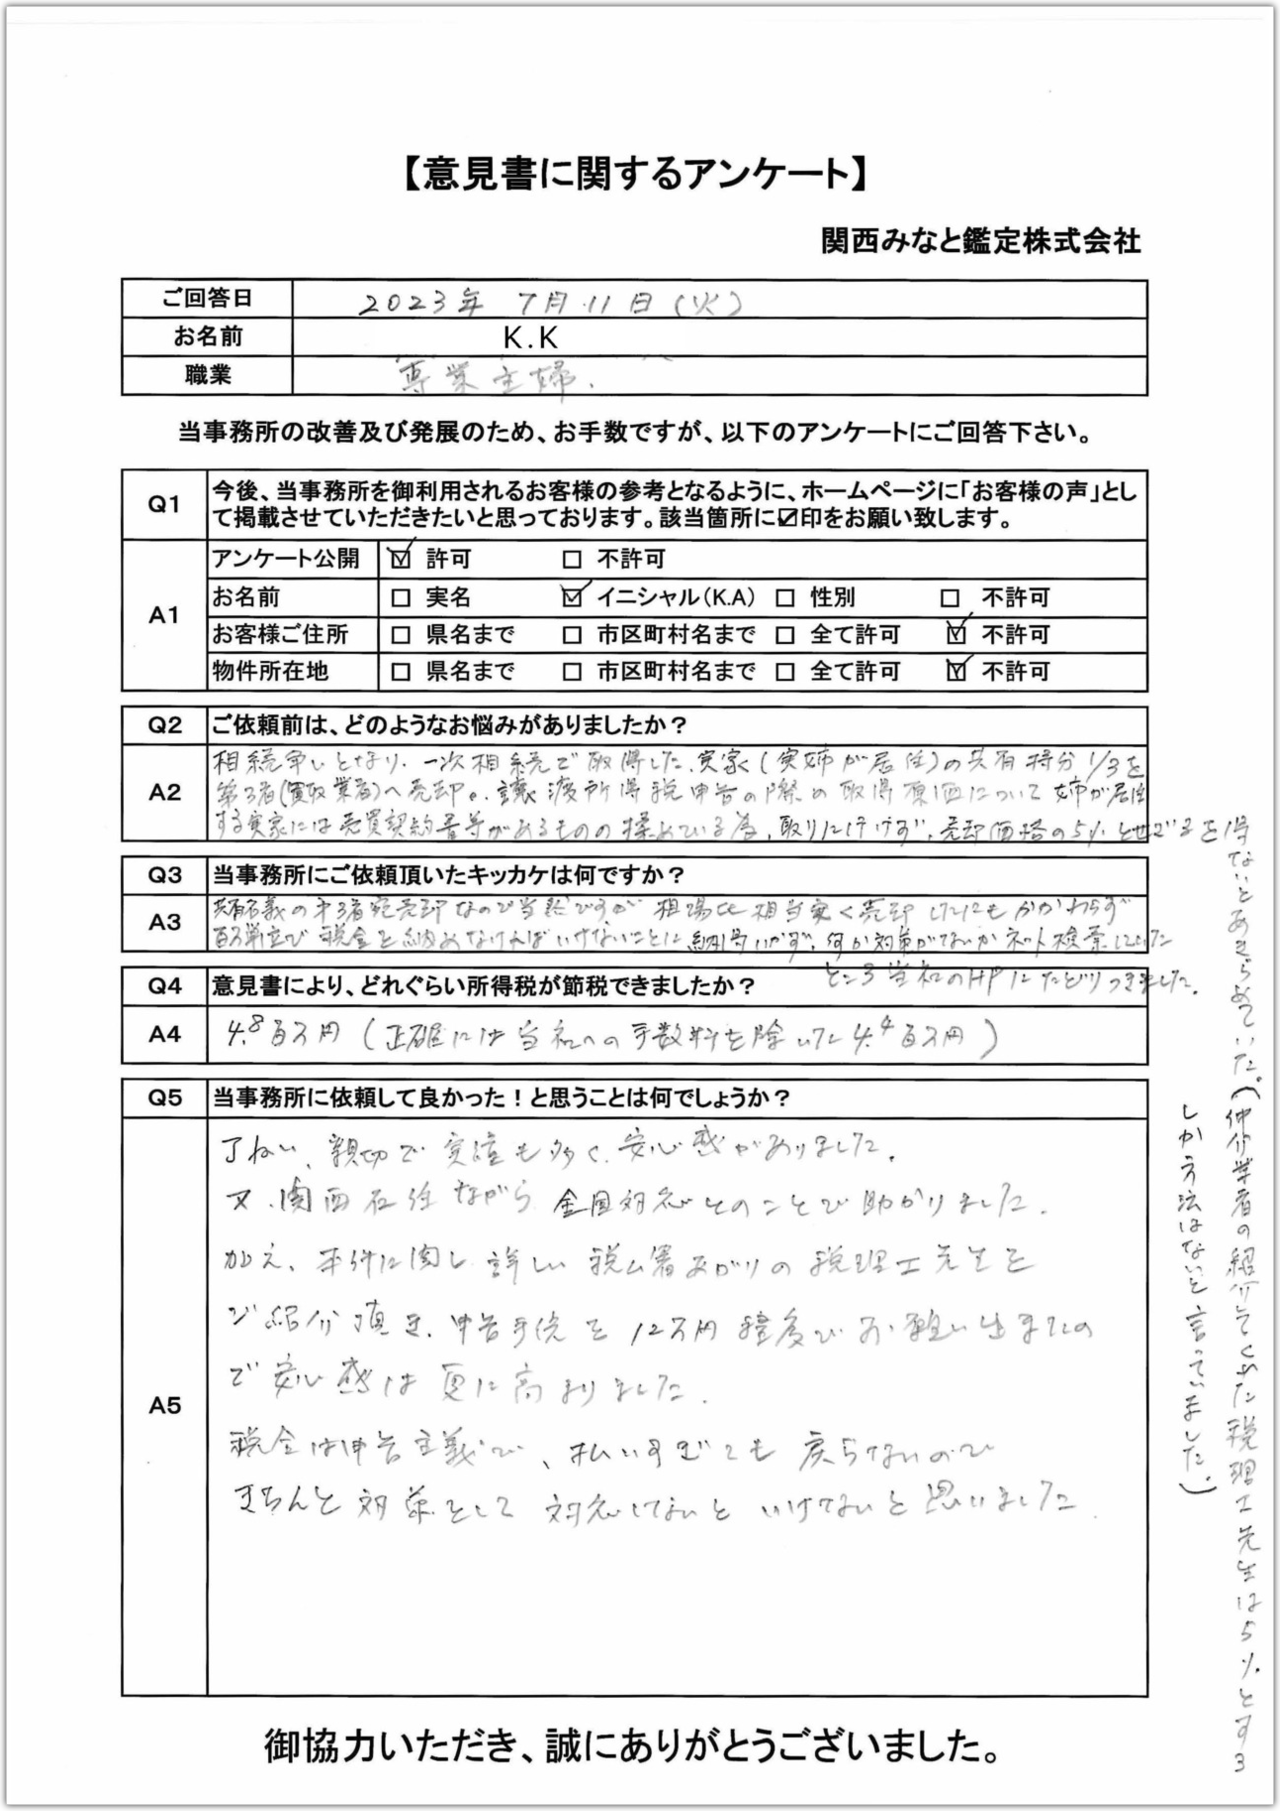 【意見書に関するアンケート】
関西みなと鑑定株式会社
ご回答日 2023年 7月 11日(火)
お名前 K.K
職業 専業主婦.
当事務所の改善及び発展のため、お手数ですが、以下のアンケートにご回答下さい。
Q1 今後、当事務所を御利用されるお客様の参考となるように、ホームページに「お客様の声」とし
て掲載させていただきたいと思っております。該当箇所に☑印をお願い致します。
A1
アンケート公開 ☑ 許可 □ 不許可
お名前 □ 実名 ☑ イニシャル(K.A) □ 性別 □ 不許可
お客様ご住所 □ 県名まで □ 市区町村名まで □ 全て許可 ☑ 不許可
物件所在地 □ 県名まで □ 市区町村名まで □ 全て許可 ☑ 不許可
Q2 ご依頼前は、どのようなお悩みがありましたか?
A2 相続争いとなり、一次相続で取得した、実家(実姉が居住)の共有持分1/3を
第3者(買取業者)へ売却。譲渡所得税申告の際の取得原価について姉が居住
する実家には売買契約書等があるものの揉めている為、取りに行けず、売却価格の5%とせざるを得
ないとあきらめていた。(仲介業者の紹介してくれた税理士先生は5%とする
しか方法はないと言っていました。)
Q3 当事務所にご依頼頂いたキッカケは何ですか?
A3 共有名義の第3者宛売却なので当然ですが 相場比相当安く売却したにもかかわらず
百万単位び税金を納めなければいけないことに納得いかず、何か対策がないかネット検索していた
ところ当社のHPにたどりつきました。
Q4 意見書により、どれぐらい所得税が節税できましたか?
A4 4.8百万円(正確には当社への手数料を除いた4.4百万円)
Q5 当事務所に依頼して良かった!と思うことは何でしょうか?
A5 丁ねい、親切で実績も多く、安心感がありました。
又、関西在住ながら 全国対応とのことで助かりました。
加え、本件に関し詳しい税ム署あがりの税理士先生を
ご紹介頂き、申告手続を12万円程度でお願い出きたの
で安心感は更に高まりました。
税金は申告主義で、払いすぎても戻らないので
きちんと対策をして 対応しないと いけないと思いました.
御協力いただき、誠にありがとうございました。